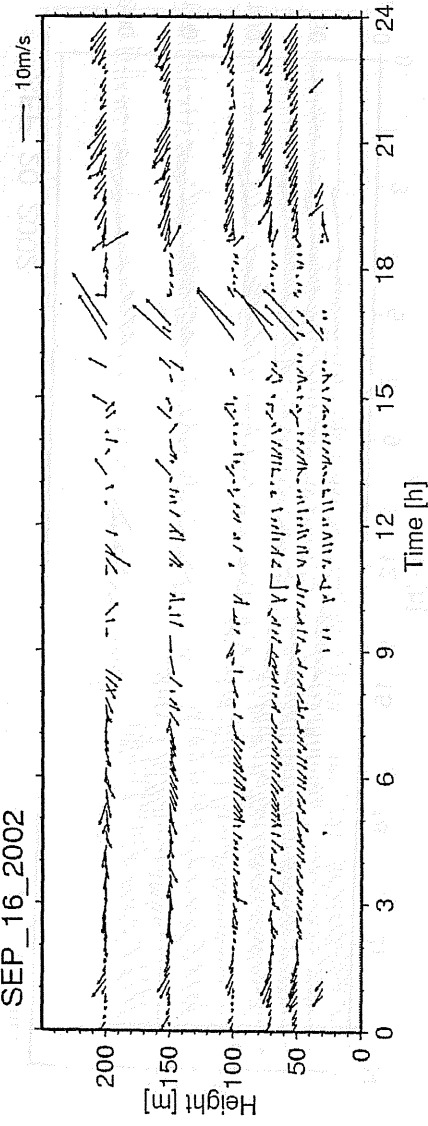 SEP_16_2002
10m/s
Height [m]
200
150
100
50
0
0 3 6 9 12 15 18 21 24
Time [h]